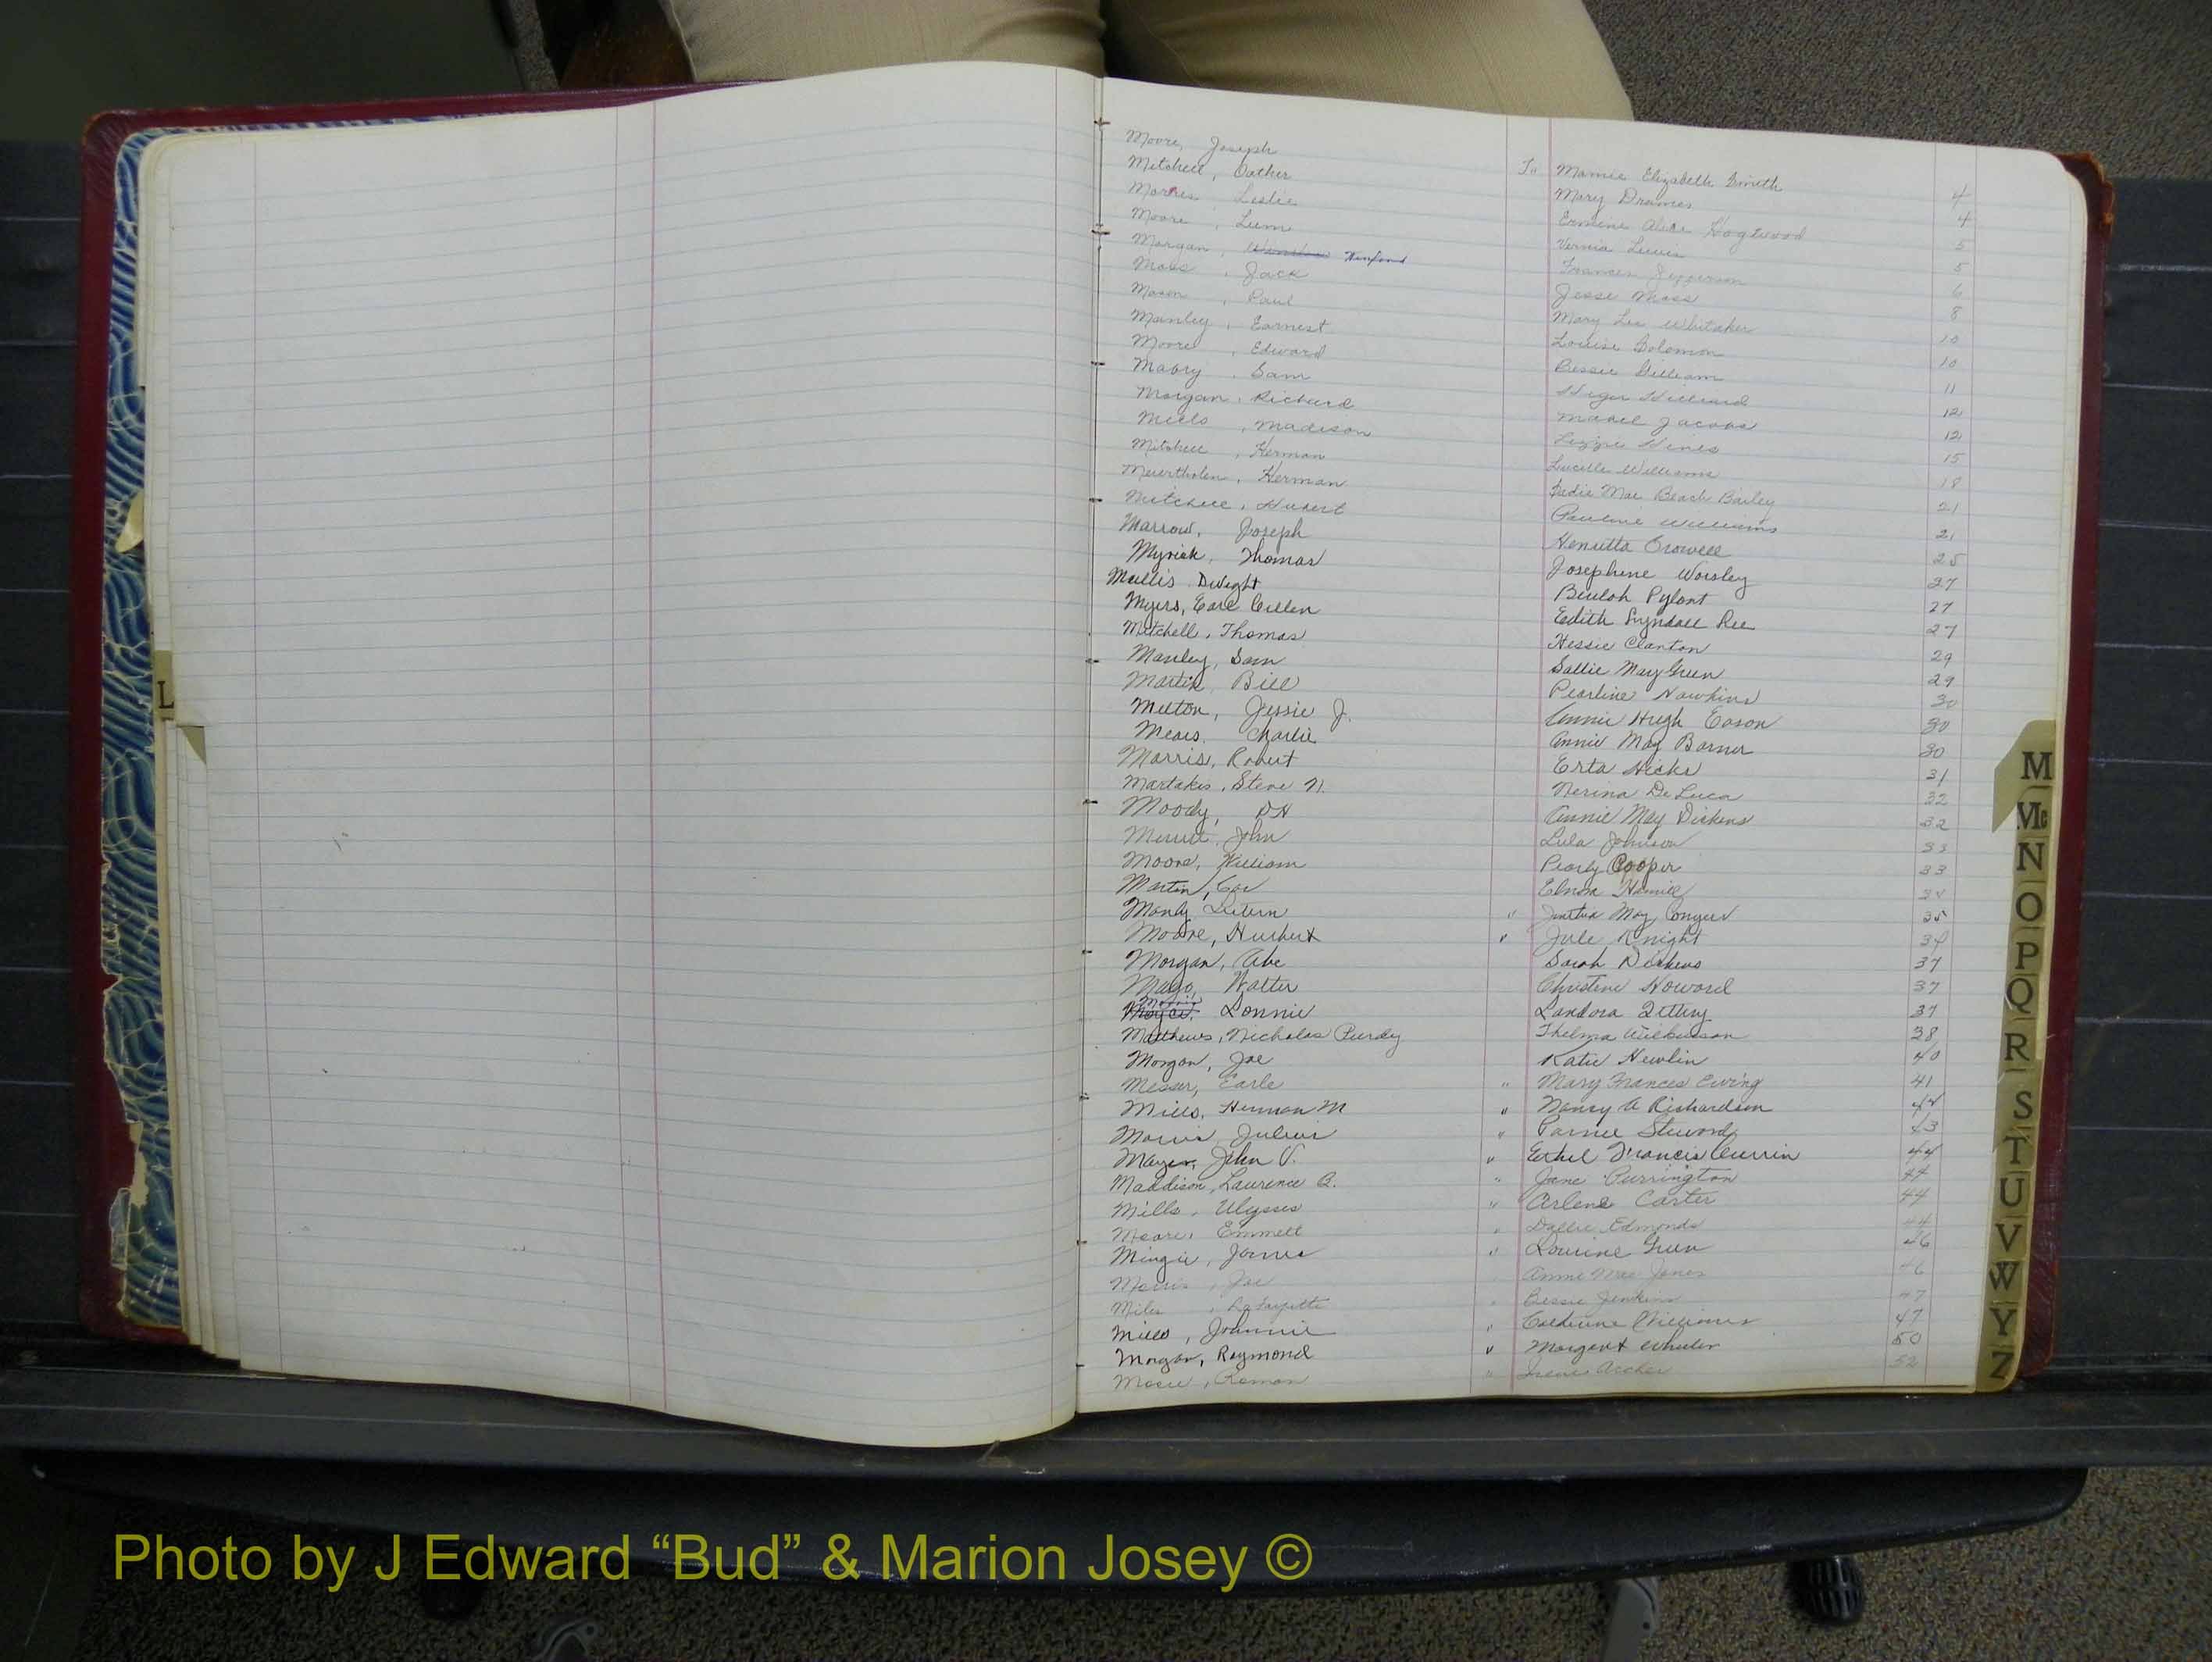 Moore, Joseph To Mamie Elizabeth Smith 4
Mitchell, Oather Mary Drames 4
Morris Leslie Ermine Alice Hogwood 5
Moore, Lum Vernia Lewis 5
Morgan, Winford Frances Jefferson 6
Moss, Jack Jesse Moss 8
Mason, Paul Mary Lee Whitaker 10
Manley, Earnest Louise Solomon 10
Moore, Edward Bessie Gilliam 11
Mabry, Sam Hilliard 12
Morgan, Richard Mabel Jacobs 12
Mills, Madison Lizzie Hines 15
Mitchell, Herman Lucille Williams 18
Herman Mae Beach Bailey 21
Mitchell, Hubert Pauline Williams 21
Marrow, Joseph Henrietta Crowell 25
Myrick, Thomas Josephine Worsley 27
Mullis Dwight Beulah Pylant 27
Myers, Earl Cullen Edith Lyndall Lee 27
Mitchell, Thomas Hessie Clanton 29
Manley, Sam Sallie May Green 29
Martin, Bill Pearline Hawkins 30
Melton, Jessie J. Annie Hugh Eason 30
Mears, Charlie Annie May Barner 30
Morris, Robert Erta Hicks 31
Martakis, Steve N. Nerina De Luca 32
Moody, DH Annie May Dickens 32
Merritt, John Lula Johnson 33
Moore, William Pearly Cooper 33
Martin, Elnora
Manly May Conyers 35
Moore, Hurbert " Jule Knight
Morgan, Abe Sarah Dickens 37
Mayo, Walter Christine Howard 37
Morris Lonnie Landora 37
Matthews, Nicholas Purdy Thelma Wilkerson 38
Morgan, Joe Katie Newlin 40
Messer, Earle " Mary Frances Ewing 41
Mills, Herman M " Nancy A Richardson
Morris, Julius " 43
Mayer, John V. " Ethel Francis Currin 44
Maddison, Laurence B. " Jane Purrington 44
Mills, Ulysses " Arlene Carter 44
Moore, Emmett " Dollie Edmonds 44
Mingie, James " Lourine Green 46
Morris, Joe Annie Mae Jones 46
Miles, Lafayette " Bessie Jenkins 47
Mills, Johnnie " Catherine Williams 47
Morgan, Raymond " Margaret Wheeler 50
Roman " Irene Archer 52
L
M
Mc
N
O
P
Q
R
S
T
U
V
W
Y
Z
Photo by J Edward “Bud” & Marion Josey ©